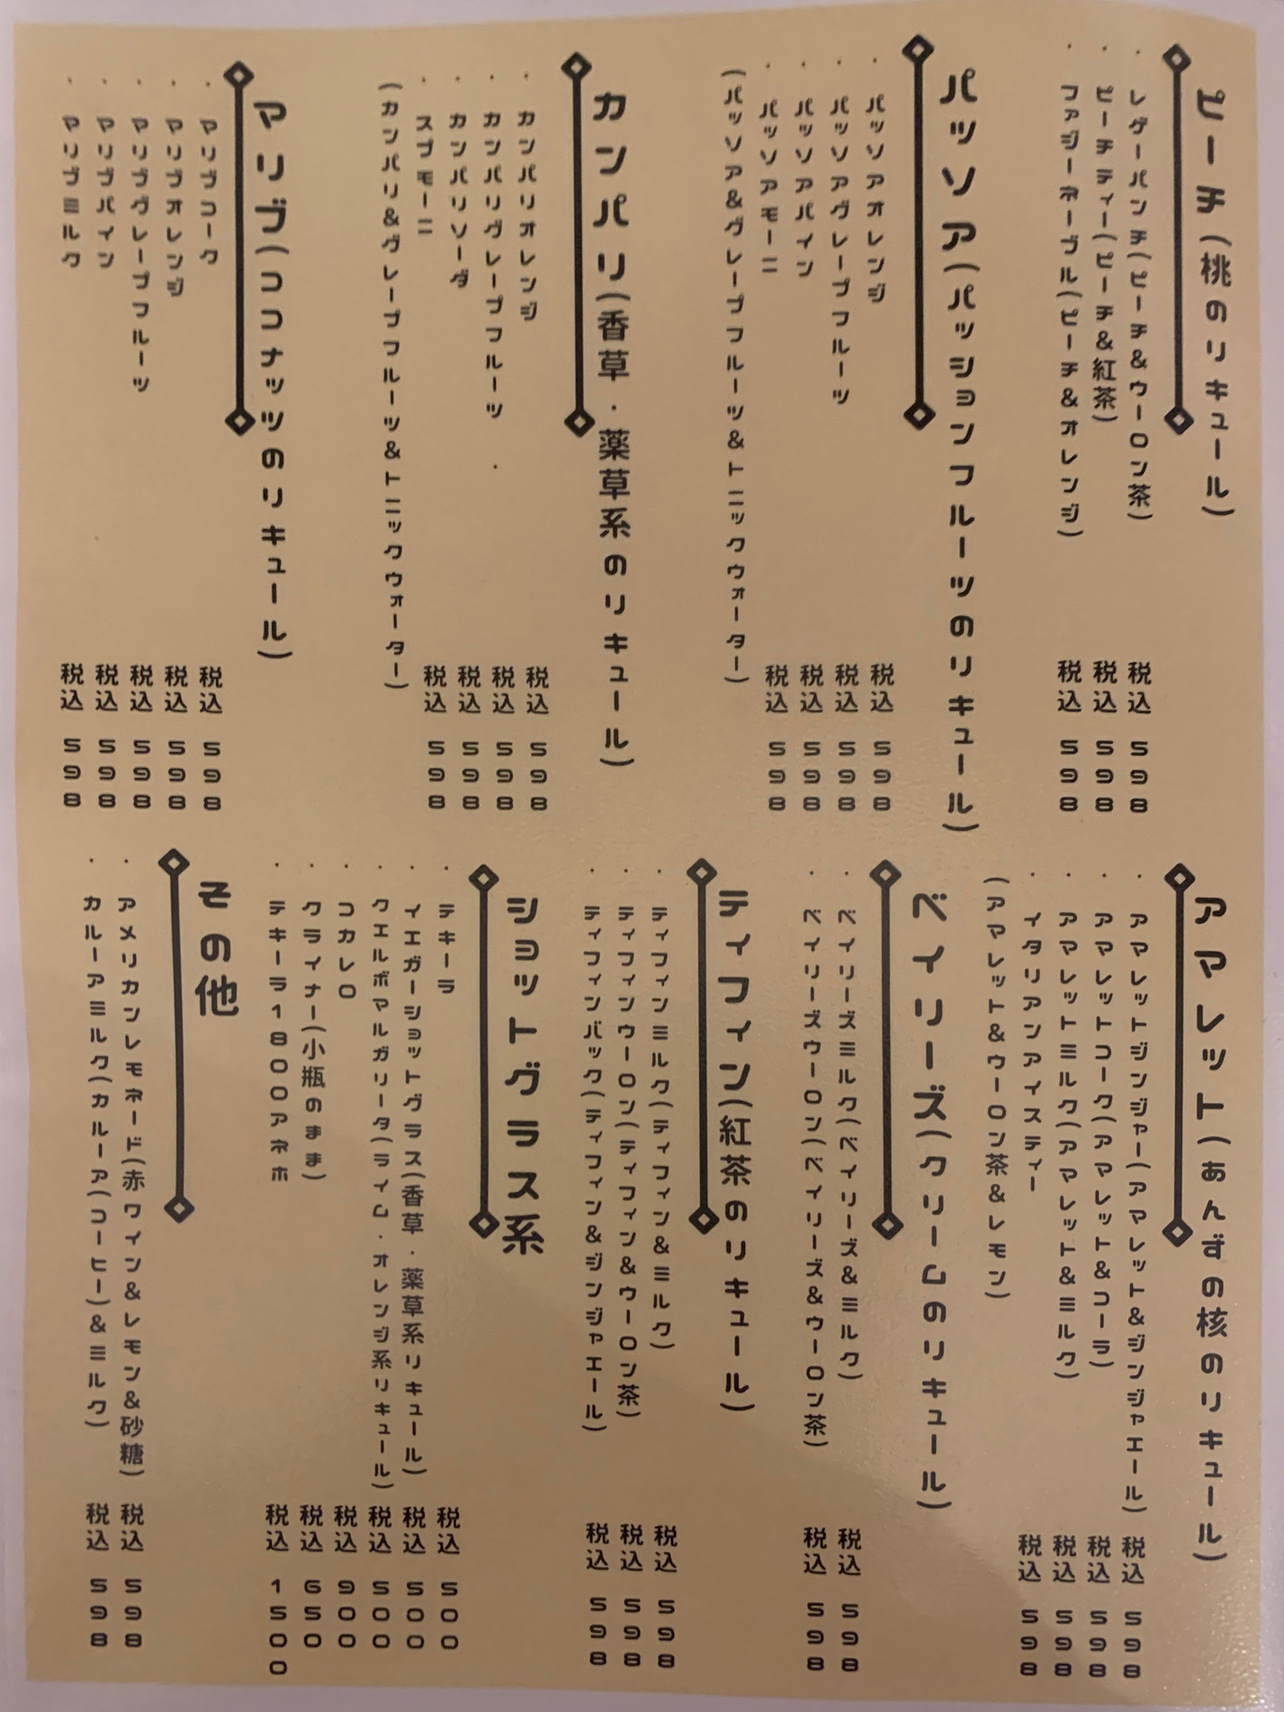 ピーチ(桃のリキュール)
・レゲーパンチ(ピーチ&ウーロン茶) 税込 598
・ピーチティー(ピーチ&紅茶) 税込 598
・ファジーネーブル(ピーチ&オレンジ) 税込 598
パッソア(パッションフルーツのリキュール)
・パッソアオレンジ 税込 598
・パッソアグレープフルーツ 税込 598
・パッソアパイン 税込 598
・パッソアモーニ 税込 598
(パッソア&グレープフルーツ&トニックウォーター)
カンパリ(香草・薬草系のリキュール)
・カンパリオレンジ 税込 598
・カンパリグレープフルーツ 税込 598
・カンパリソーダ 税込 598
・スプモーニ 税込 598
(カンパリ&グレープフルーツ&トニックウォーター)
マリブ(ココナッツのリキュール)
・マリブコーク 税込 598
・マリブオレンジ 税込 598
・マリブグレープフルーツ 税込 598
・マリブパイン 税込 598
・マリブミルク 税込 598
アマレット(あんずの核のリキュール)
・アマレットジンジャー(アマレット&ジンジャエール) 税込 598
・アマレットコーク(アマレット&コーラ) 税込 598
・アマレットミルク(アマレット&ミルク) 税込 598
・イタリアンアイスティー 税込 598
(アマレット&ウーロン茶&レモン)
ベイリーズ(クリームのリキュール)
・ベイリーズミルク(ベイリーズ&ミルク) 税込 598
・ベイリーズウーロン(ベイリーズ&ウーロン茶) 税込 598
ティフィン(紅茶のリキュール)
・ティフィンミルク(ティフィン&ミルク) 税込 598
・ティフィンウーロン(ティフィン&ウーロン茶) 税込 598
・ティフィンバック(ティフィン&ジンジャエール) 税込 598
ショットグラス系
・テキーラ 税込 500
・イエガーショットグラス(香草・薬草系リキュール) 税込 500
・クエルボマルガリータ(ライム・オレンジ系リキュール) 税込 500
・コカレロ 税込 900
・クライナー(小瓶のまま) 税込 650
・テキーラ1800アネホ 税込 1500
その他
・アメリカンレモネード(赤ワイン&レモン&砂糖) 税込 598
・カルーアミルク(カルーア(コーヒー)&ミルク) 税込 598